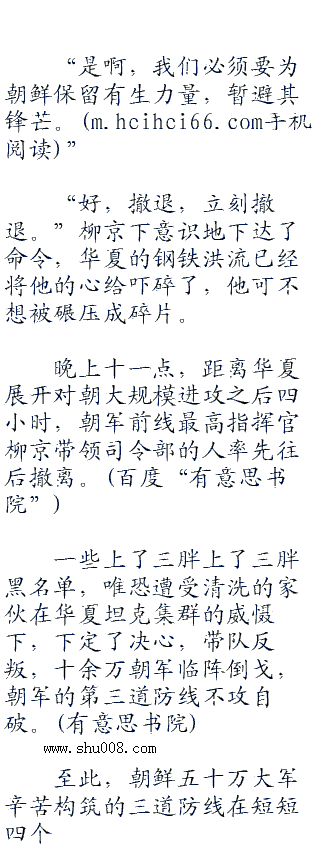 “是啊，我们必须要为
朝鲜保留有生力量，暂避其
锋芒。(m.hcihci66.com手机
阅读)”
“好，撤退，立刻撤
退。”柳京下意识地下达了
命令，华夏的钢铁洪流已经
将他的心给吓碎了，他可不
想被碾压成碎片。
晚上十一点，距离华夏
展开对朝大规模进攻之后四
小时，朝军前线最高指挥官
柳京带领司令部的人率先往
后撤离。(百度“有意思书
院”)
一些上了三胖上了三胖
黑名单，唯恐遭受清洗的家
伙在华夏坦克集群的威慑
下，下定了决心，带队反
叛，十余万朝军临阵倒戈，
朝军的第三道防线不攻自
破。(有意思书院)
www.shu008.com
至此，朝鲜五十万大军
辛苦构筑的三道防线在短短
四个